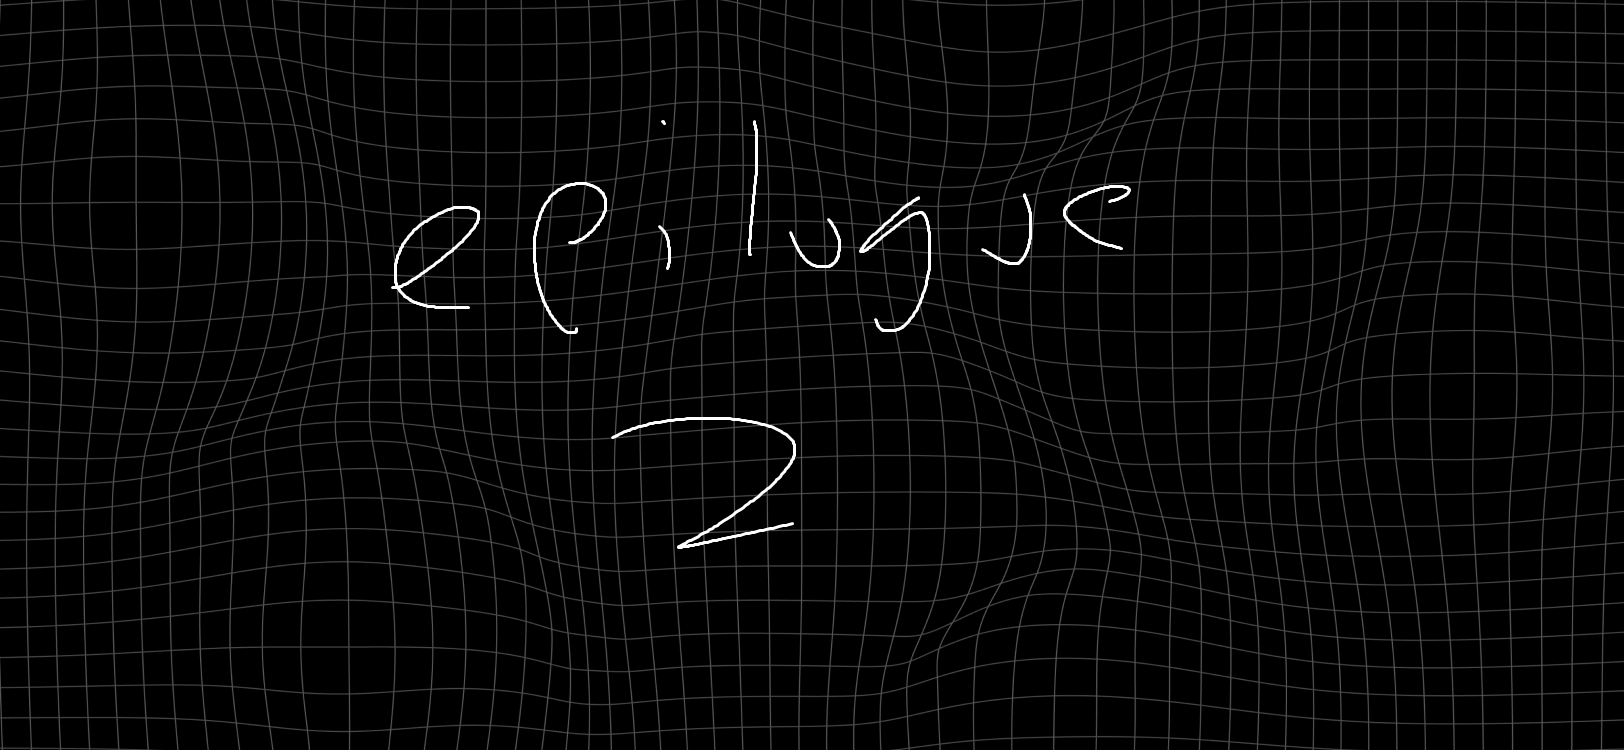 epilogue
2